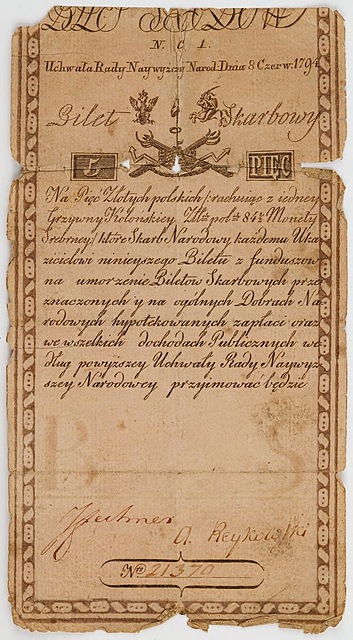 N. C 1.
Uchwała Rady Naywyższy Narod. Dnia 8 Czerw. 1794
Bilet Skarbowy
5 PIĘC
Na Pięć Złotych polskich rachuiąc z iedney
Grzywny Kolońskiey Złt: pol: 84½ Monety
Srebrney/ które Skarb Narodowy każdemu Uka
zicielowi ninieyszego Biletu z funduszow
na umorzenie Biletów Skarbowych prze
znaczonych y na ogólnych Dobrach Na
rodowych hypotekowanych zapłaci oraz
we wszelkich dochodach Publicznych we
dług powyższey Uchwały Rady Naywyż
szey Narodowey przyimować będzie
A. Reykowski
No 21370